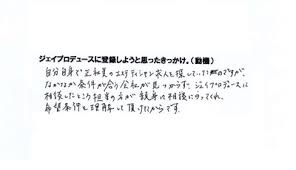 ジェイプロデュースに登録しようと思ったきっかけ。(動機)
自分自身で正社員のエステティシャン求人を探していたのですが、
なかなか条件が合う会社が見つからず、ジェイプロデュースに
相談したところ担当の方が親身に相談にのってくれ、
希望条件を理解して頂けたからです。